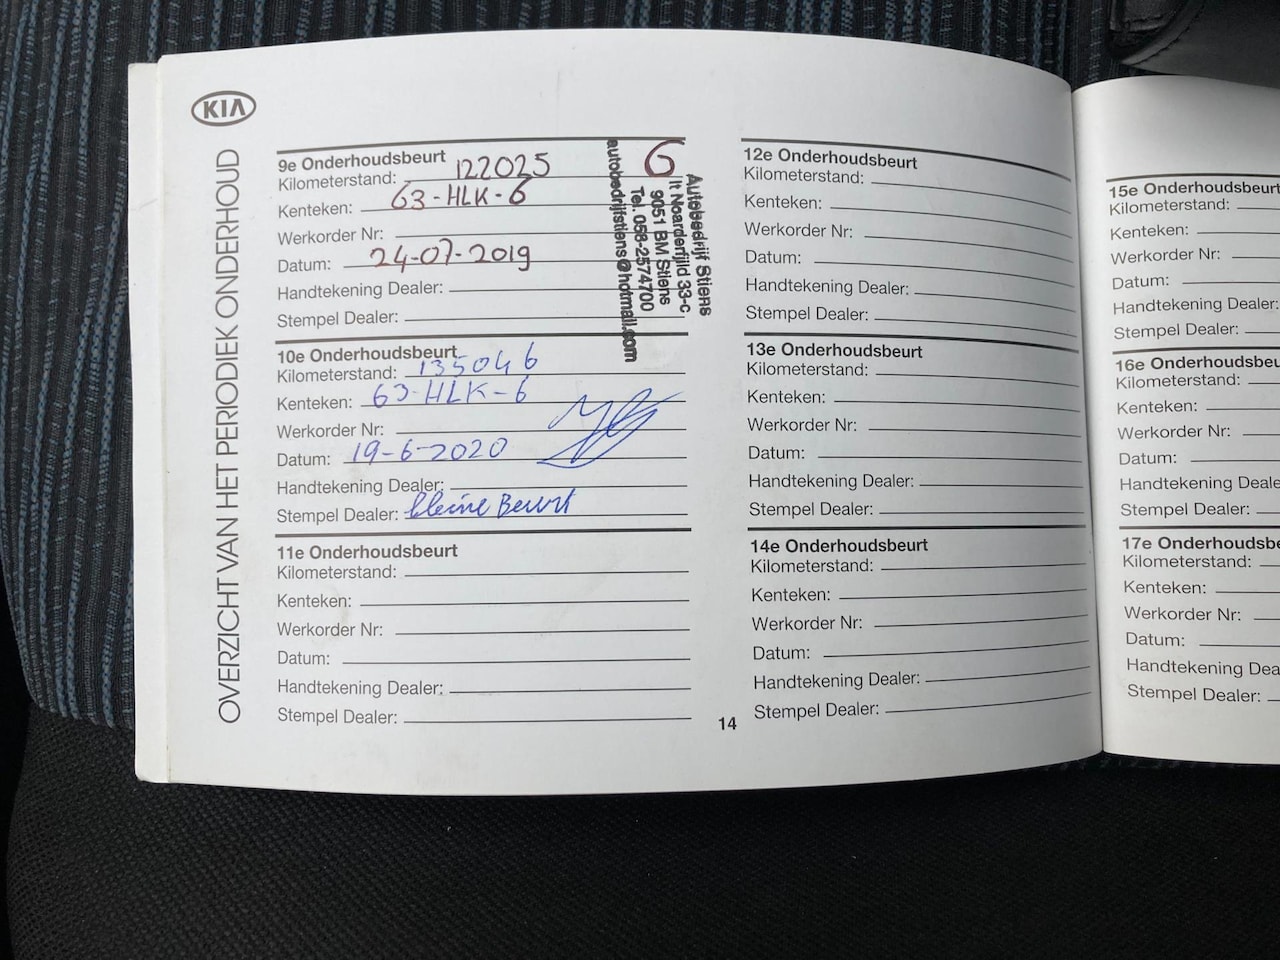 KIA
OVERZICHT VAN HET PERIODIEK ONDERHOUD
9e Onderhoudsbeurt
Kilometerstand: 122025
Kenteken: 63-HLK-6
Werkorder Nr:
Datum: 24-07-2019
Handtekening Dealer:
Stempel Dealer:
G
Autobedrijf Stiens
It Noarderfjild 33-c
9051 BM Stiens
Tel. 058-2574700
autobedrijfstiens@hotmail.com
10e Onderhoudsbeurt
Kilometerstand: 135046
Kenteken: 63-HLK-6
Werkorder Nr:
Datum: 19-6-2020
Handtekening Dealer:
Stempel Dealer: kleine Beurt
11e Onderhoudsbeurt
Kilometerstand:
Kenteken:
Werkorder Nr:
Datum:
Handtekening Dealer:
Stempel Dealer:
14
12e Onderhoudsbeurt
Kilometerstand:
Kenteken:
Werkorder Nr:
Datum:
Handtekening Dealer:
Stempel Dealer:
13e Onderhoudsbeurt
Kilometerstand:
Kenteken:
Werkorder Nr:
Datum:
Handtekening Dealer:
Stempel Dealer:
14e Onderhoudsbeurt
Kilometerstand:
Kenteken:
Werkorder Nr:
Datum:
Handtekening Dealer:
Stempel Dealer:
15e Onderhoudsbeurt
Kilometerstand:
Kenteken:
Werkorder Nr:
Datum:
Handtekening Dealer:
Stempel Dealer:
16e Onderhoudsbeu
Kilometerstand:
Kenteken:
Werkorder Nr:
Datum:
Handtekening Deale
Stempel Dealer:
17e Onderhoudsbe
Kilometerstand:
Kenteken:
Werkorder Nr:
Datum:
Handtekening Dea
Stempel Dealer: